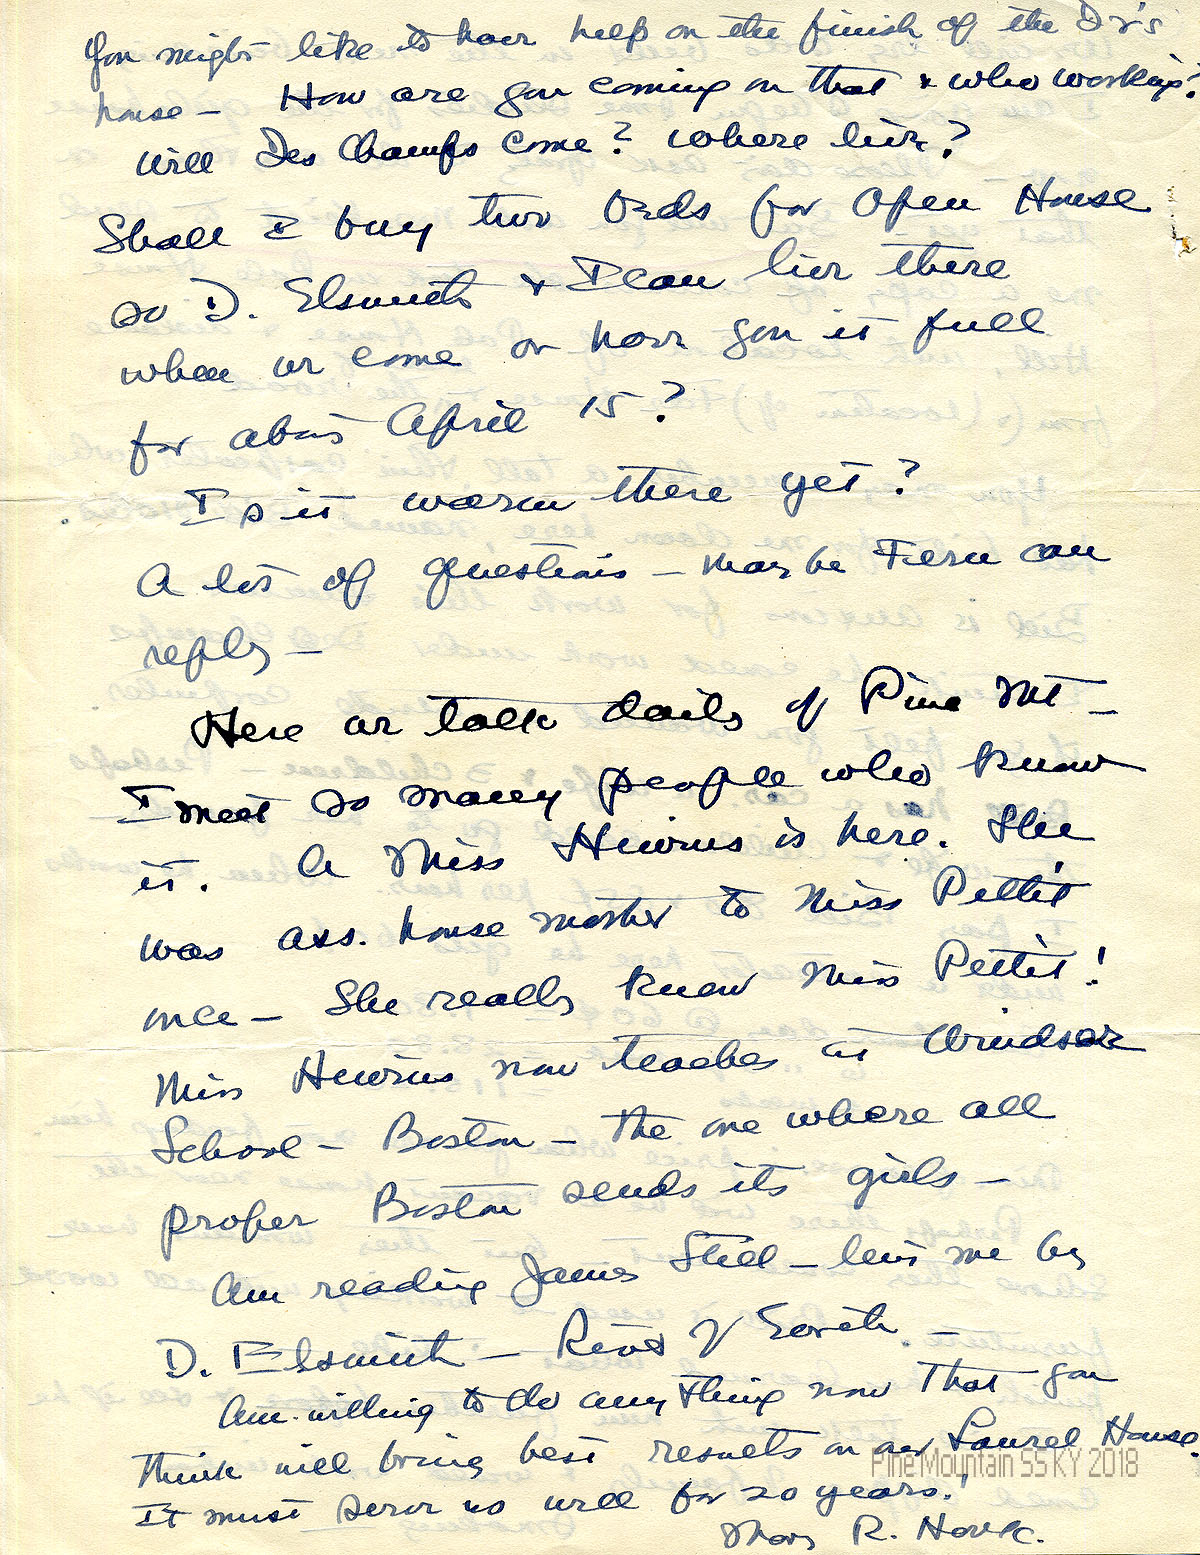 You might like to have help on the finish of the Dr's
house – How are you coming on that & who working?
Will Des Champs come? Where live?
Shall I buy two beds for Open House
so D. Elsmith & I can live there
when we come or have you it full
for about April 15?
Is it warm there yet?
A lot of questions – maybe Fern can
reply –
Here we talk daily of Pine Mt –
I meet so many people who know
it. A Miss is here. She
was ass. house mother to Miss Pettit
once – She really knew Miss Pettit!
Miss now teaches at Windsor
School – Boston – the one where all
proper Boston sends its girls –
Am reading James Still – lent me by
D. Elsmith – River of Earth. –
Am willing to do anything now that you
think will bring best results on our Laurel House.
It must serve us well for 20 years!
Mary R.
Pine Mountain SS KY 2018